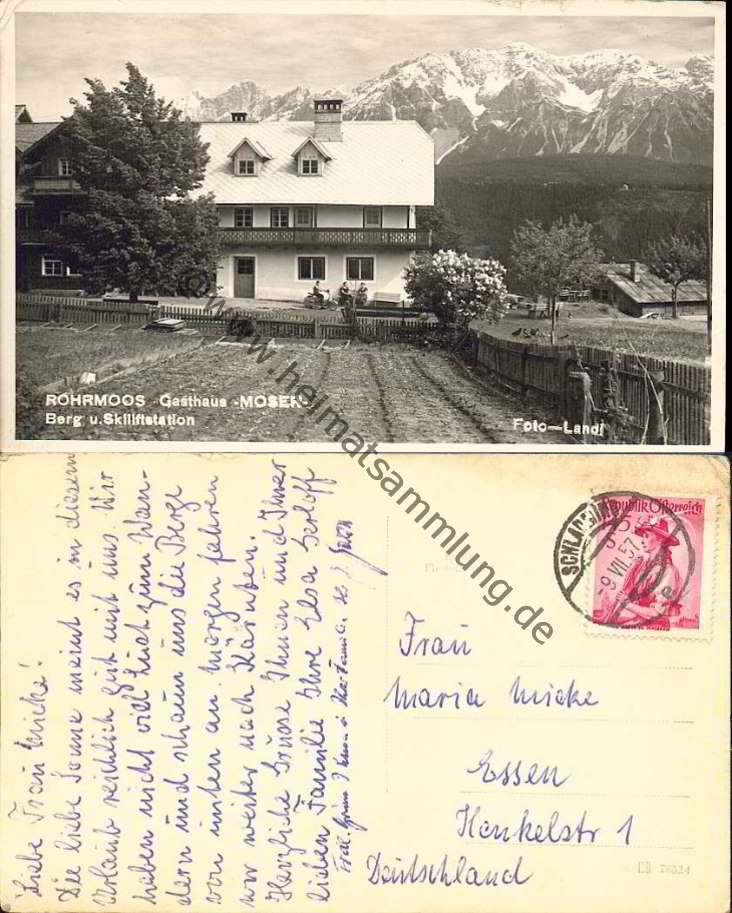 ROHRMOOS Gasthaus -MOSER-
Berg u. Skiliftstation
Foto—Landl
www.heimatsammlung.de
Liebe Frau Micke!
Die liebe Sonne meint es in diesem
Urlaub reichlich gut mit uns. Wir
haben nicht viel Lust zum Wan-
dern und schaun uns die Berge
von unten an. Morgen fahren
wir weiter nach Kärnten.
Herzliche Grüsse Ihnen und Ihrer
lieben Familie Ihre Elsa
Republik Österreich
SCHLADMING
-9.VII.57
Frau
Maria Micke
Essen
Henkelstr 1
Deutschland